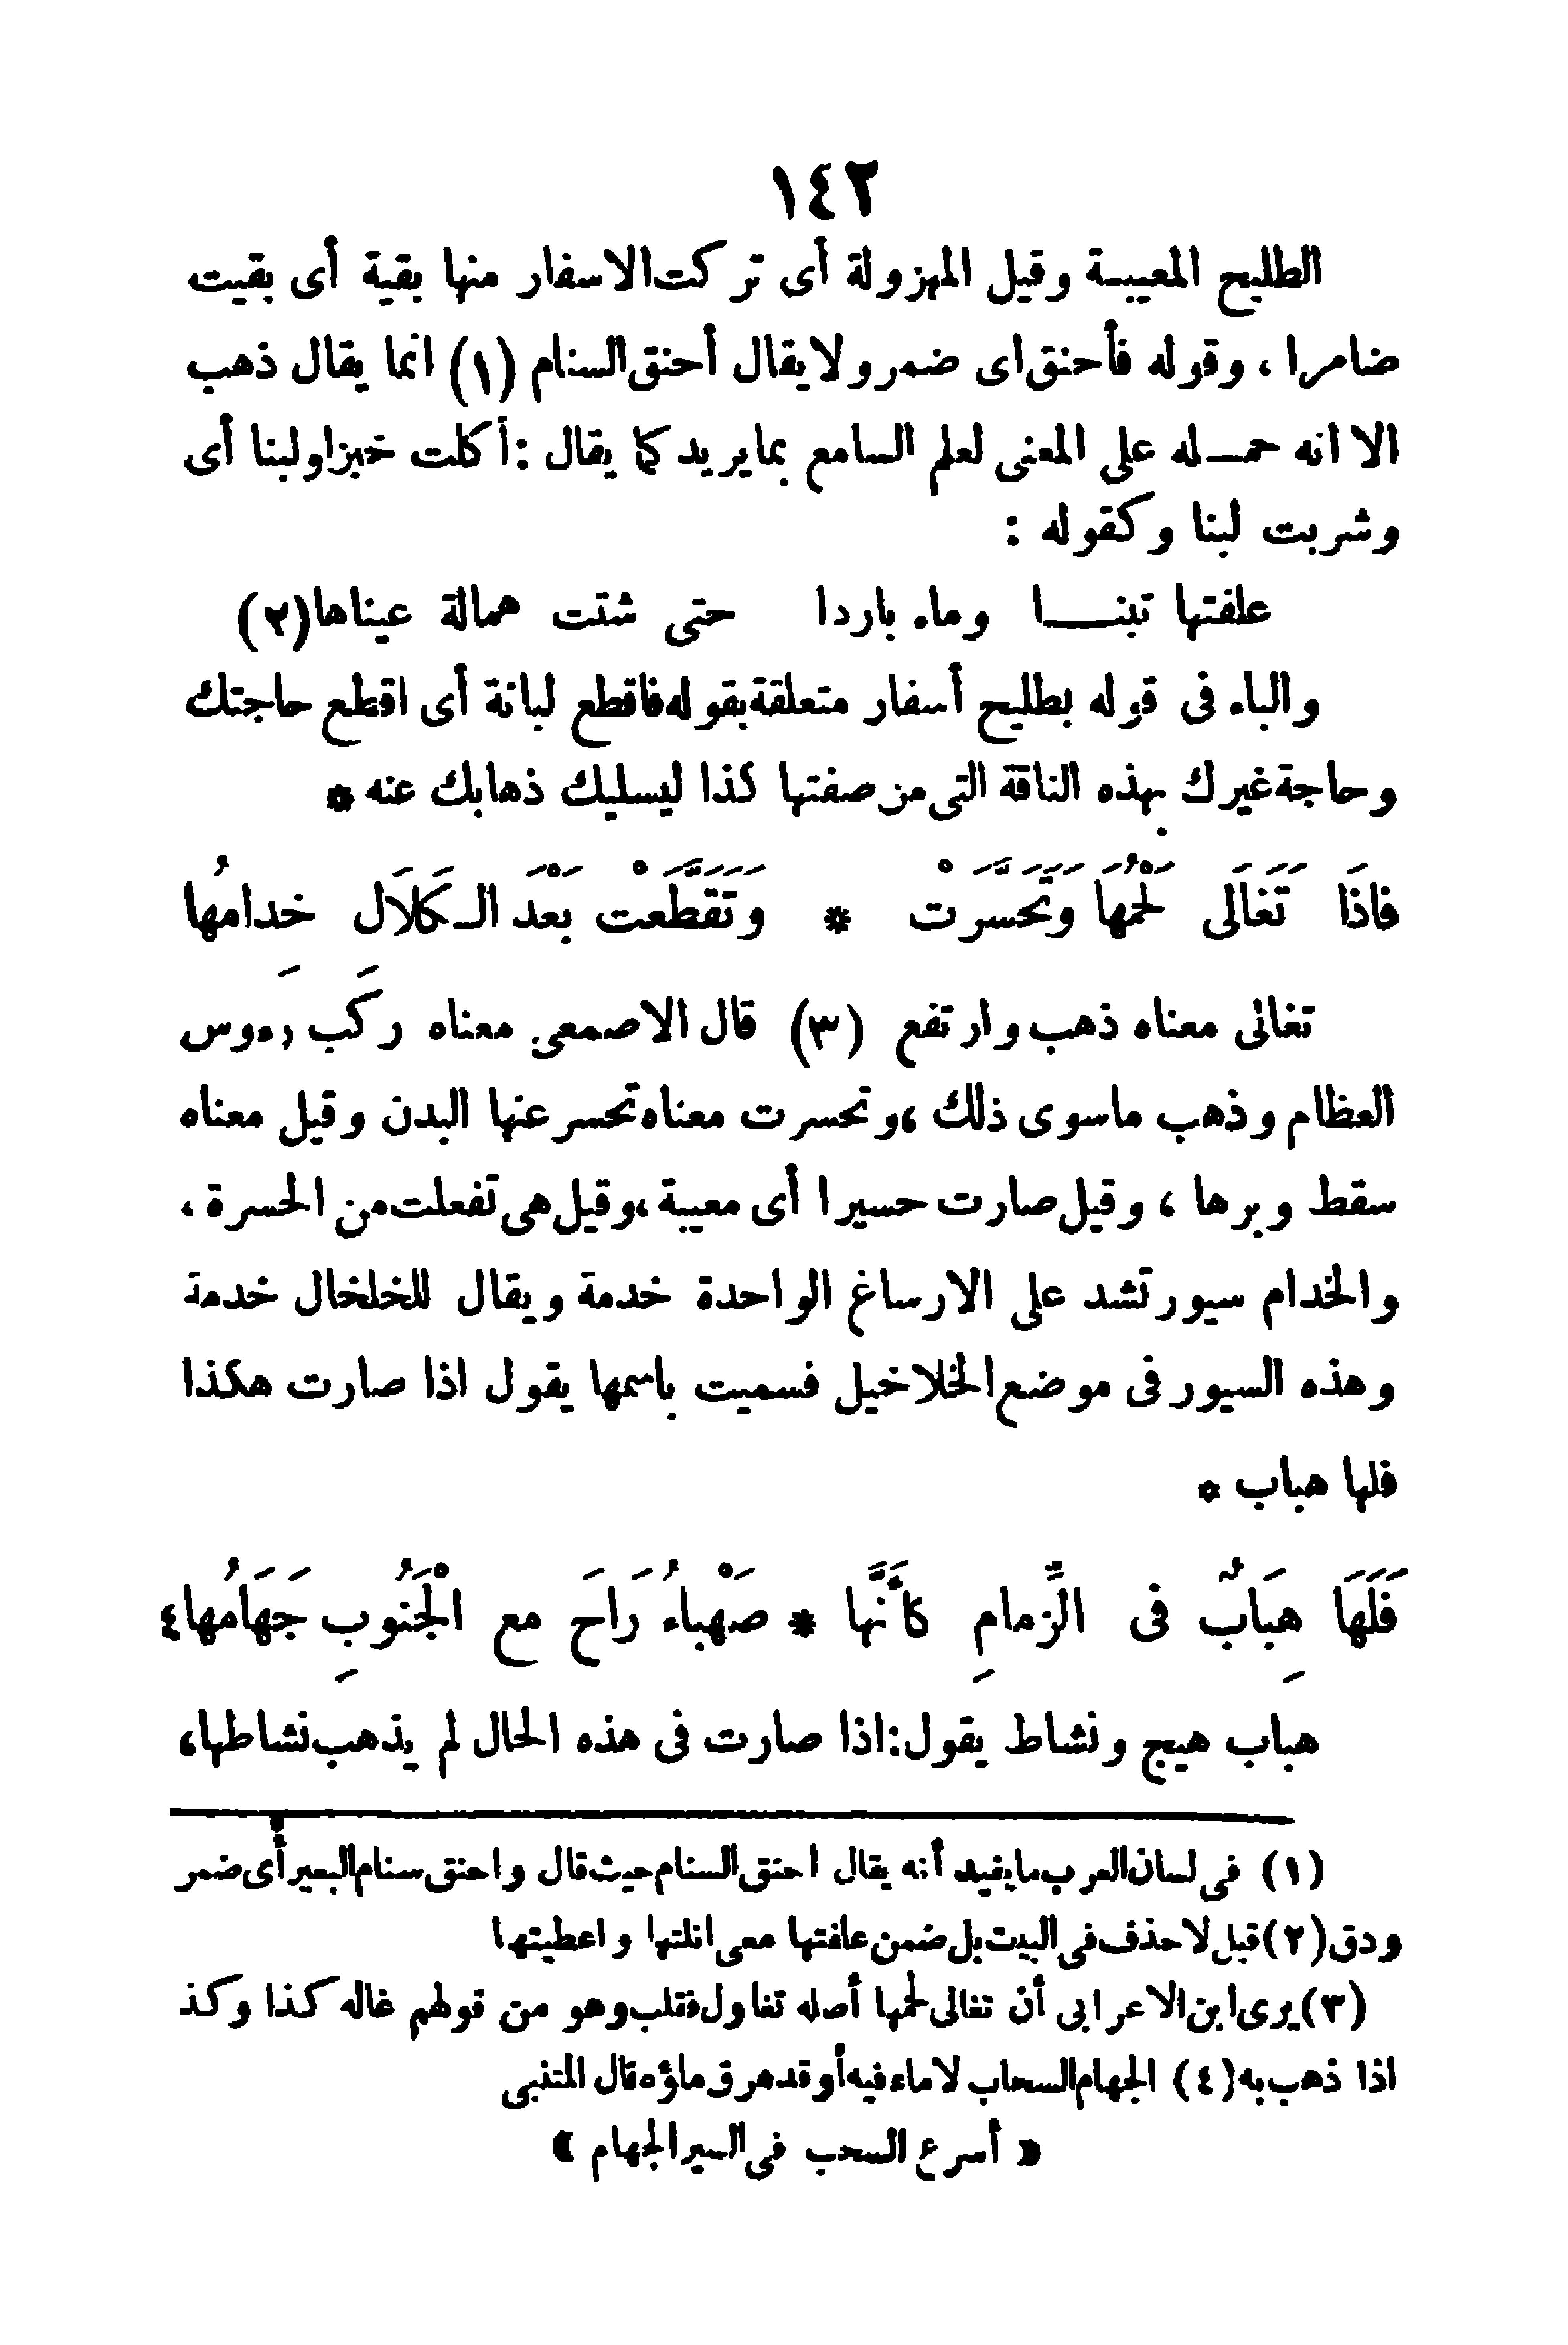 ١٤٢
الطليح المعيبة وقيل المهزولة أى تركت الاسفار منها بقية أى بقيت
ضامرا ، وقوله فأحنق اى ضمر ولا يقال أحنق السنام (١) انما يقال ذهب
الا انه حمله على المعنى لعلم السامع بما يريد كما يقال : أكلت خبزا ولبنا أى
وشربت لبنا وكقوله :
علفتها تبنا وماء باردا حتى شتت همالة عيناها (٢)
والباء فى قوله بطليح أسفار متعلقة بقوله فاقطع لبانة أى اقطع حاجتك
وحاجة غيرك بهذه الناقة التى من صفتها كذا ليسليك ذهابك عنه *
فاذَا تَغَالَى لَحْمُهَا وَتَحَسَّرَتْ * وَتَقَطَّعَتْ بَعْدَ الكَلَالِ خِدامُها
تغالى معناه ذهب وارتفع (٣) قال الاصمعى معناه ركب رءوس
العظام وذهب ماسوى ذلك ، وتحسرت معناه تحسر عنها البدن وقيل معناه
سقط وبرها ، وقيل صارت حسيرا أى معيبة ، وقيل هى تفعلت من الحسرة ،
والخدام سيور تشد على الارساغ الواحدة خدمة ويقال للخلخال خدمة
وهذه السيور فى موضع الخلاخيل فسميت باسمها يقول اذا صارت هكذا
فلها هباب *
فَلَهَا هِبَابٌ فى الزِّمامِ كأَنَّها * صَهْباءُ رَاحَ مع الْجَنُوبِ جَهَامُها٤
هباب هيج ونشاط يقول : اذا صارت فى هذه الحال لم يذهب نشاطها ،
(١) فى لسان العرب مايفيد أنه يقال احنق السنام حيث قال واحنق سنام البعير أى ضمر
ودق (٢) قيل لا حذف فى البيت بل ضمن علفتها معى انلتها واعطيتها
(٣) يرى ابن الاعرابى أن تغالى لحمها أصله تغاول فقلب وهو من قولهم غاله كذا وكذ
اذا ذهب به (٤) الجهام السحاب لا ماء فيه أو قد هرق ماؤه قال المتنبى
« أسرع السحب فى السير الجهام »